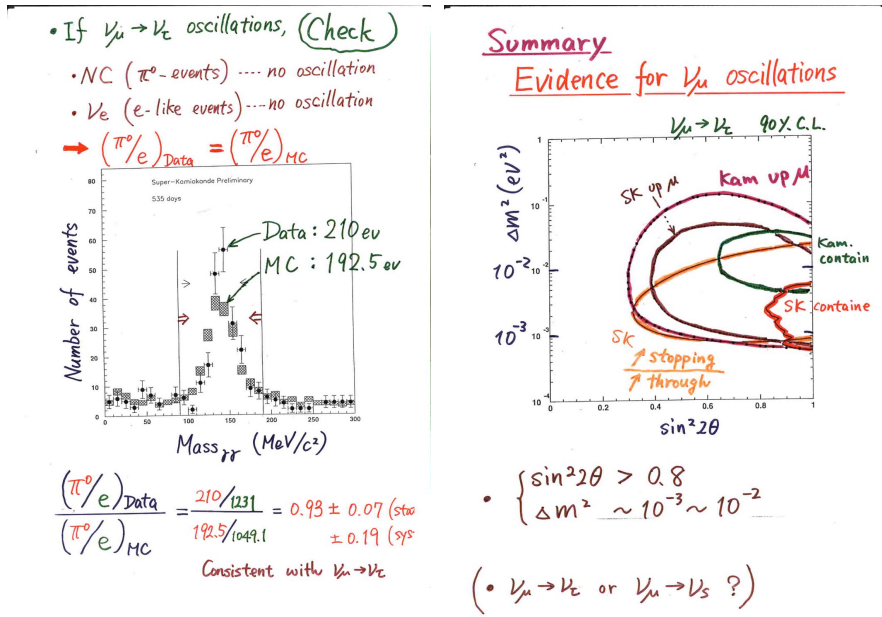 • If νμ → ντ oscillations, (Check)
• NC (π⁰-events) ---- no oscillation
• νe (e-like events) ---- no oscillation
→ (π⁰/e)Data = (π⁰/e)MC
Super-Kamiokande Preliminary
535 days
Data : 210 ev
MC : 192.5 ev
Number of events
80
70
60
50
40
30
20
10
0
0 50 100 150 200 250 300
Mass γγ (MeV/c²)
(π⁰/e)Data / (π⁰/e)MC = 210/1231 / 192.5/1049.1 = 0.93 ± 0.07 (sta
± 0.19 (sys
Consistent with νμ → ντ
Summary
Evidence for νμ oscillations
νμ → ντ 90% C.L.
Δm² (eV²)
1
10⁻¹
10⁻² 10⁻²
10⁻³ 10⁻³
10⁻⁴
SK up μ
Kam up μ
Kam. contain
SK containe
SK
↑ stopping
↑ through
0 0.2 0.4 0.6 0.8 1
sin²2θ
• { sin²2θ > 0.8
Δm² ~ 10⁻³ ~ 10⁻²
(• νμ → ντ or νμ → νs ?)